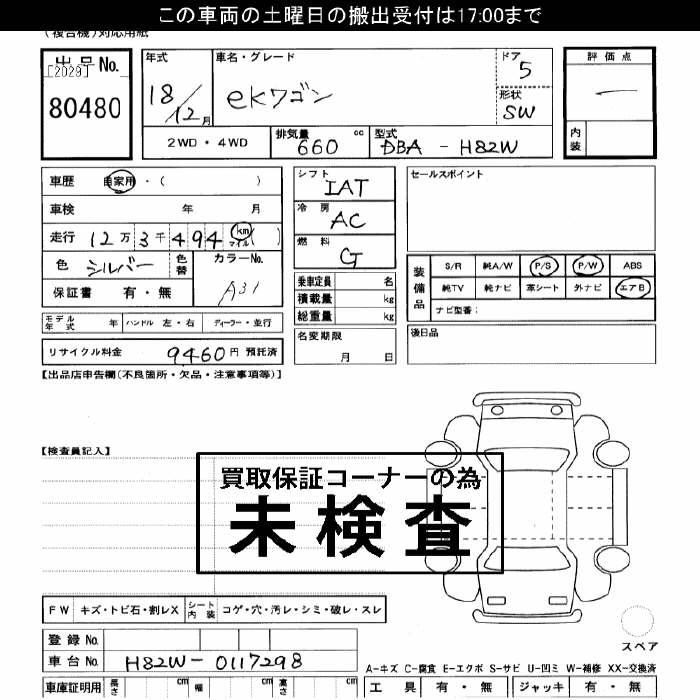 この車両の土曜日の搬出受付は17:00まで
(複合機)対応用紙
出品No. [2029] 80480
年式 18/12月
車名・グレード eKワゴン
ドア 5
形状 SW
評価点 —
内装
2WD・4WD
排気量 660 cc
型式 DBA - H82W
車歴 自家用・( )
車検 年 月
走行 12万3千494 km マイル( )
色 シルバー 色替
カラーNo. A31
保証書 有・無
シフト IAT
冷房 AC
燃料 G
乗車定員 名
積載量 kg
総重量 kg
セールスポイント
装備品 S/R 純A/W P/S P/W ABS
純TV 純ナビ 革シート 外ナビ エアB
ナビ型番:
モデル年式 年 ハンドル 左・右 ディーラー・並行
名変期限 月 日
後日品
リサイクル料金 9460円 預託済
【出品店申告欄(不良箇所・欠品・注意事項等)】
【検査員記入】
買取保証コーナーの為
未検査
FW キズ・トビ石・割レX シート内装 コゲ・穴・汚レ・シミ・破レ・スレ
スペア
登録No.
車台No. H82W-0117298
A-キズ C-腐食 E-エクボ S-サビ U-凹ミ W-補修 XX-交換済
車庫証明用 長さ cm 幅 cm 高さ cm
工具 有・無 ジャッキ 有・無